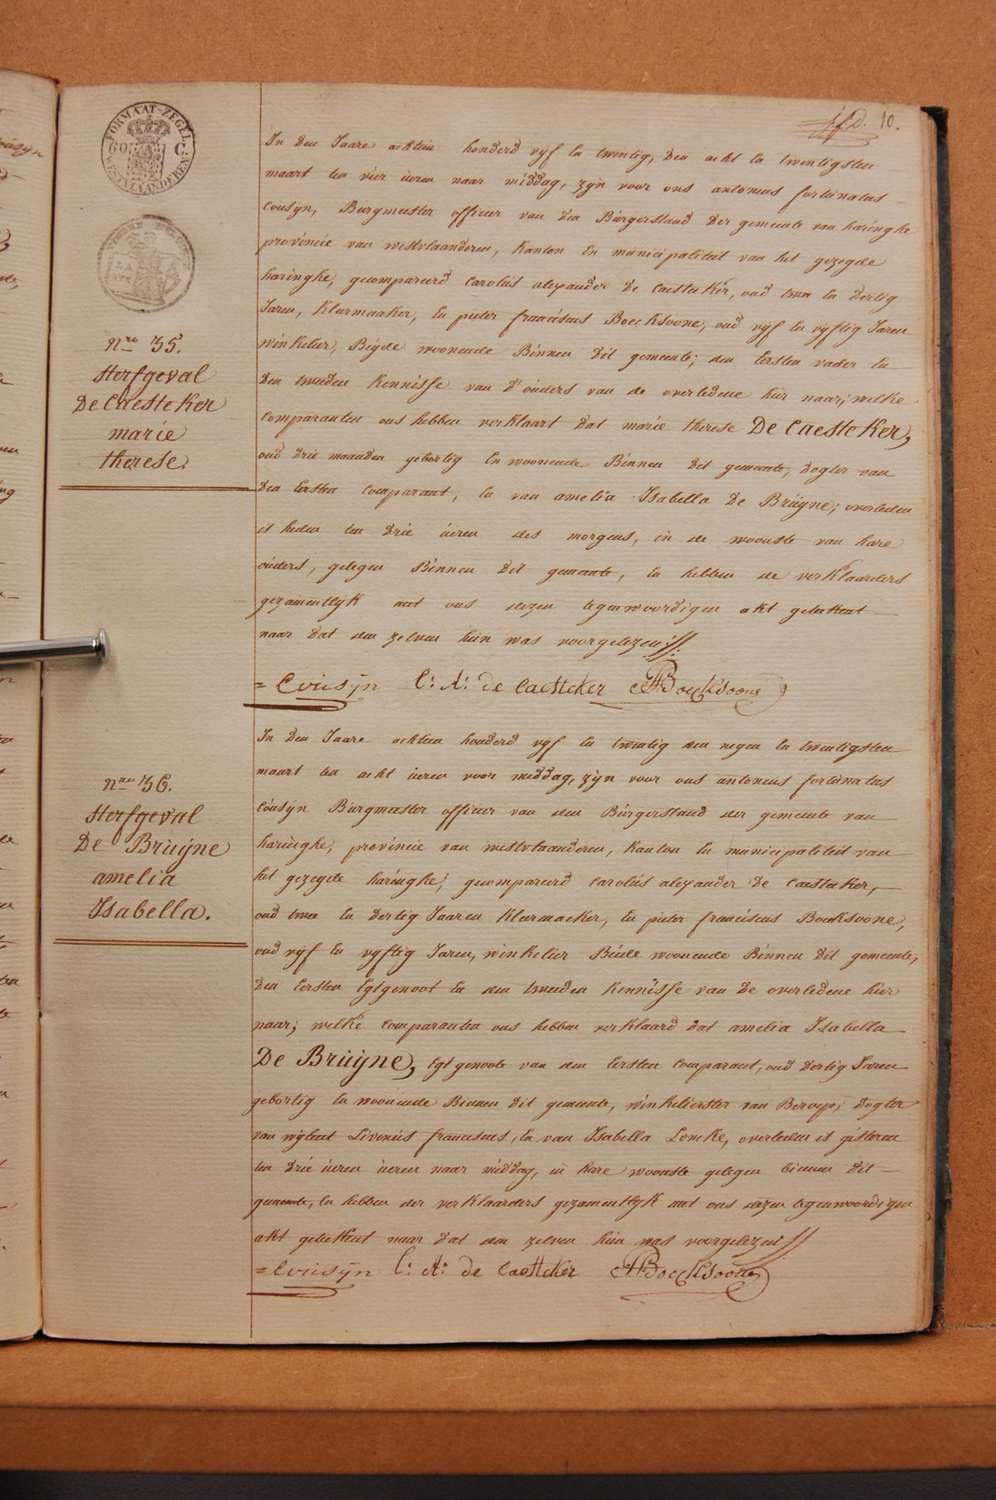 10.
FORMAAT-ZEGEL
WESTVLAANDEREN
nro 35.
Sterfgeval
De Caesteker
marie
therese.
In den Jaare achtien honderd vyf en twintig, den acht en twintigsten
maart ten vier ueren naar middag, zyn voor ons antonius fortunatus
Cousyn, Burgmeester officier van den Burgerstand der gemeente van haringhe
provincie van westvlaanderen, Kanton en municipaliteit van het gezegde
haringhe, gecompareerd Carolus alexander De Caesteker, oud twee en dertig
Jaren, Klermaaker, en pieter franciscus Boecksoone, oud vyf en vyftig Jaren
winkelier, Beyde woonende Binnen dit gemeente; den Eersten vader en
den tweeden Kennisse van d'ouders van de overledene hier naar; welke
comparanten ons hebben verklaart dat marie therese De Caesteker,
oud drie maanden gebortig en woonende Binnen dit gemeente, dogter van
den Eersten Comparant, en van amelia Isabella De Bruyne; overleden
is heden ten drie ueren des morgens, in de wooniste van hare
ouders, gelegen Binnen dit gemeente, en hebben de verklaarders
gezamentlyk met ons dezen tegenwoordigen akt geteekent
naar dat den zelven hun was voorgelezen//.
= Cousijn C: A: de Caesteker PF Boecksoone
nro 36.
Sterfgeval
De Bruijne
amelia
Isabella.
In den Jaare achtien honderd vyf en twintig den negen en twintigsten
maart ten acht ueren voor middag, zyn voor ons antonius fortunatus
Cousyn Burgmeester officier van den Burgerstand der gemeente van
haringhe, provincie van westvlaanderen, Kanton en municipaliteit van
het gezegde haringhe, gecompareerd Carolus alexander De Caesteker,
oud twee en dertig Jaaren Klermaeker, en pieter franciscus Boecksoone,
oud vyf en vyftig Jaren, winkelier Beide woonende Binnen dit gemeente,
den Eersten Egtgenoot en den tweeden Kennisse van De overledene hier
naar; welke comparanten ons hebben verklaard dat amelia Isabella
De Bruijne, Egtgenoote van den Eersten Comparant, oud dertig Jaren
gebortig en woonende Binnen dit gemeente, winkelierster van Beroep; dogter
van wylent Livinus franciscus, en van Isabella Loncke, overleden is gisteren
ten drie ueren ueren naar middag, in hare wooniste gelegen binnen dit
gemeente, en hebben der verklaarders gezamentlyk met ons dezen tegenwoordigen
akt geteekent naar dat den zelven hun was voorgelezen//
= Cousijn C: A: de Caesteker PF Boecksoone